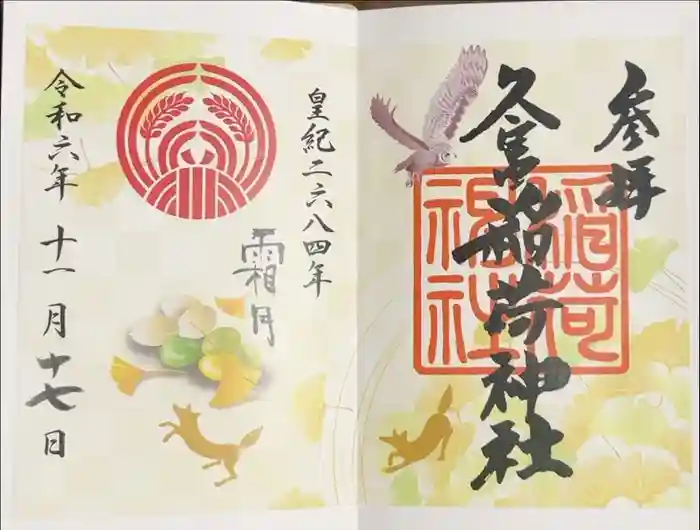 参拝
久富稲荷神社
稲荷
神社
皇紀二六八四年
霜月
令和六年 十一月 十七日